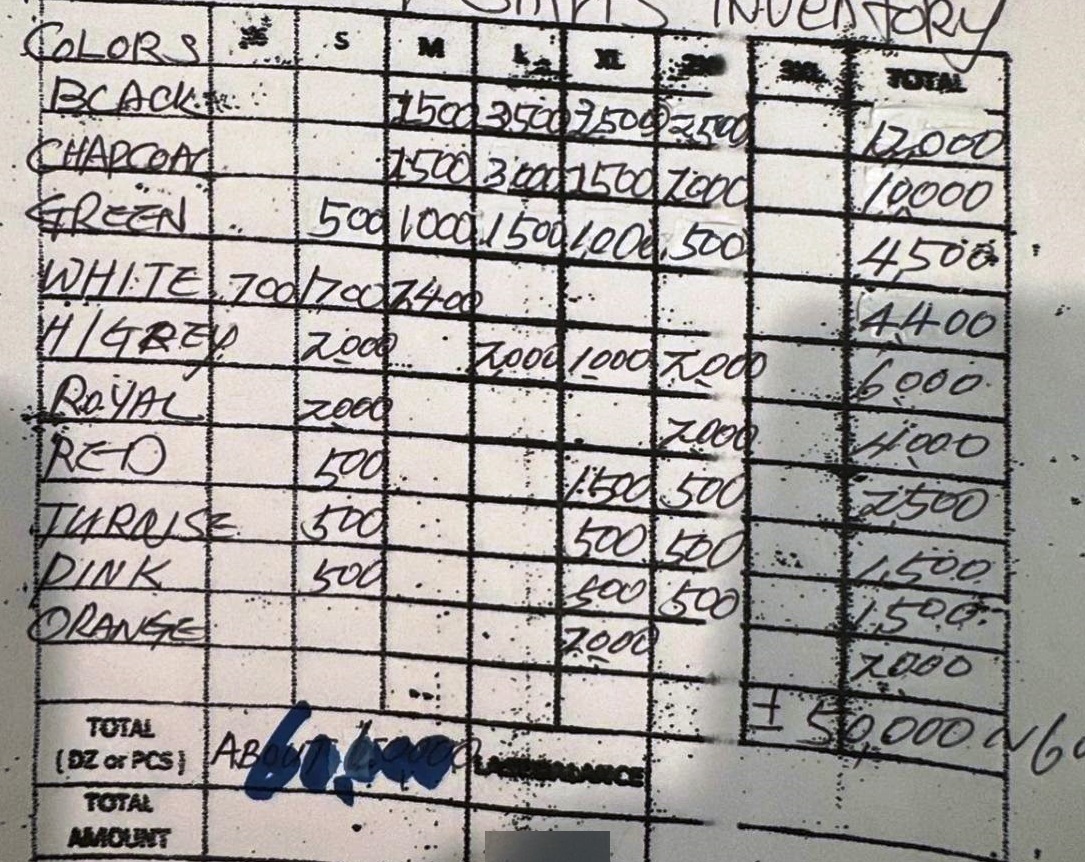 INVENTORY
COLORS XS S M L XL 2XL 3XL TOTAL
BLACK 2500 3500 3500 2500 12,000
CHARCOAL 2500 3,000 2500 2,000 10,000
GREEN 500 1000 1500 1,000 500 4,500
WHITE 700 1700 2400 4,400
H/GREY 2,000 2,000 1,000 2,000 6,000
ROYAL 2,000 2,000 4,000
RED 500 1,500 500 2,500
TURQUISE 500 500 500 1,500
PINK 500 500 500 1,500
ORANGE 2,000 2,000
± 50,000
TOTAL
(DZ or PCS) ABOUT 60,000
TOTAL
AMOUNT